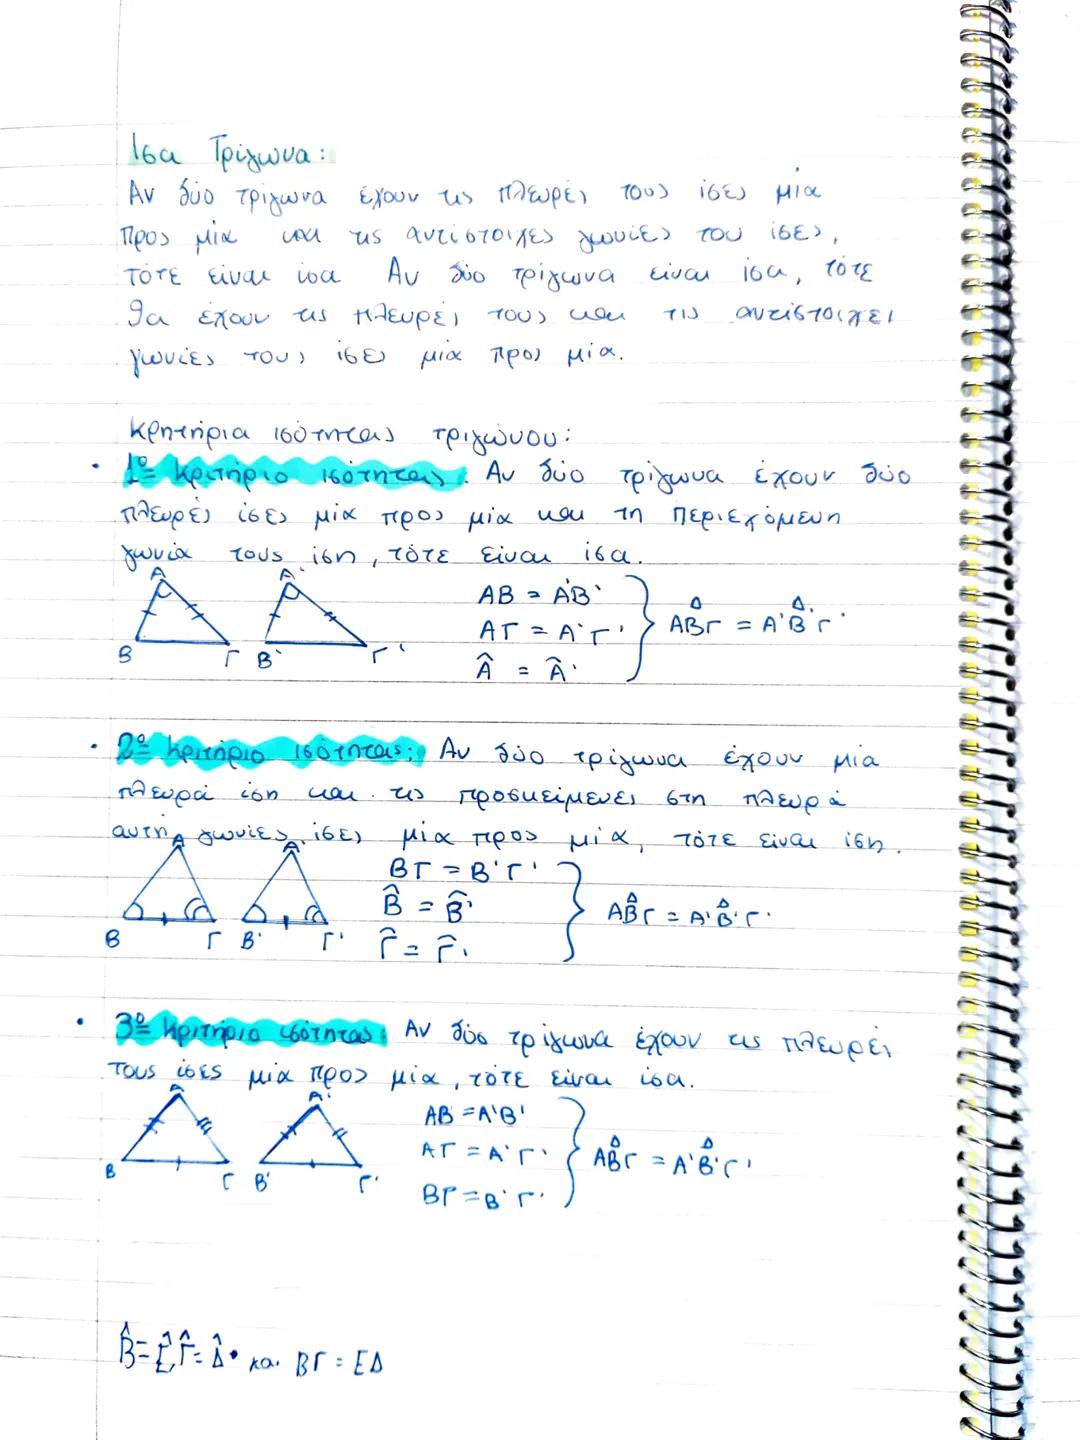 Ισα Τρίγωνα:
Αν δύο τρίγωνα έχουν τις πλευρές τους ίσες μία
προς μία και τις αντίστοιχες γωνίες του ίσες,
τότε είναι ίσα Αν δύο τρίγωνα είναι ίσα, τότε
θα έχουν τις πλευρές τους και τις αντίστοιχες
γωνίες τους ίσες μία προς μία.
Κρητήρια ισότητας τριγώνου:
• 1º Κριτήριο ισότητας: Αν δύο τρίγωνα έχουν δύο
πλευρές ίσες μία προς μία και τη περιεχόμενη
γωνία τους ίση, τότε είναι ίσα.
Α Α'
ΑΒ = Α'Β'
ΑΓ = Α'Γ' } ΑΒ̂Γ = Α'Β̂'Γ'
Β Γ Β' Γ'
Â = Â'
• 2º Κριτήριο ισότητας: Αν δύο τρίγωνα έχουν μία
πλευρά ίση και τις προσκείμενες στη πλευρά
αυτή γωνίες ίσες μία προς μία, τότε είναι ίση.
Α Α'
ΒΓ = Β'Γ'
Β̂ = Β̂' } ΑΒ̂Γ = Α'Β̂'Γ'
Β Γ Β' Γ'
Γ̂ = Γ̂'
• 3º Κριτήριο ισότητας: Αν δύο τρίγωνα έχουν τις πλευρές
τους ίσες μία προς μία, τότε είναι ίσα.
Α Α'
ΑΒ = Α'Β'
ΑΓ = Α'Γ' } ΑΒ̂Γ = Α'Β̂'Γ'
Β Γ Β' Γ'
ΒΓ = Β'Γ'
Β̂ = Ε̂, Γ̂ = Δ̂ • και ΒΓ = ΕΔ